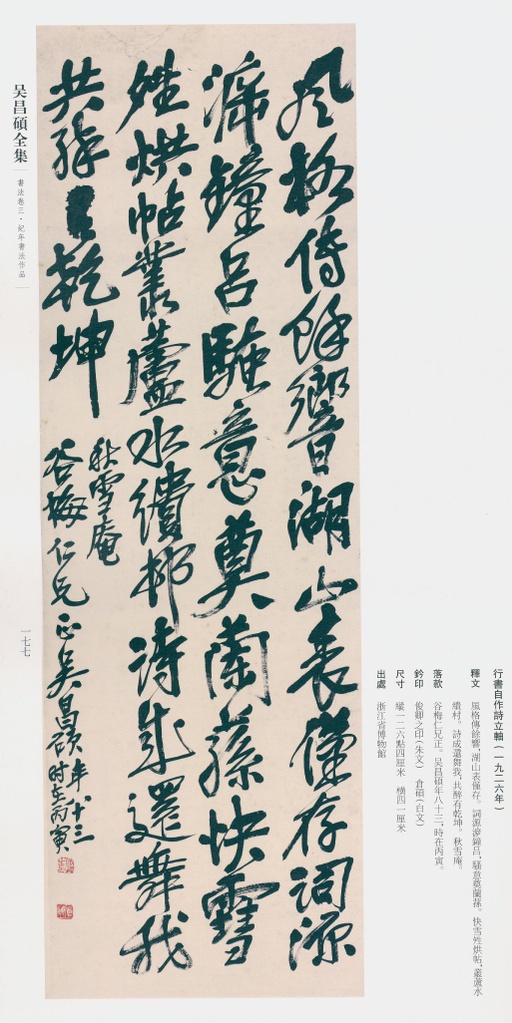 風格傳餘響湖山表僅存詞源
鐘呂騷意奠蘭蓀快雪
姓烘帖叢蘆水繢邨詩成還舞我
共醉有乾坤
秋雪庵
谷梅仁兄正吳昌碩年八十三時在丙寅
行書自作詩立軸(一九二六年)
釋文 風格傳餘響,湖山表僅存。詞源鐘呂,騷意奠蘭蓀。快雪姓烘帖,叢蘆水
繢村。詩成還舞我,共醉有乾坤。秋雪庵。
落款 谷梅仁兄正。吴昌碩年八十三,時在丙寅。
鈐印 俊卿之印(朱文) 倉碩(白文)
尺寸 縱一二六點四厘米 橫四一厘米
出處 浙江省博物館
吴昌碩全集
書法卷三·紀年書法作品
一七七